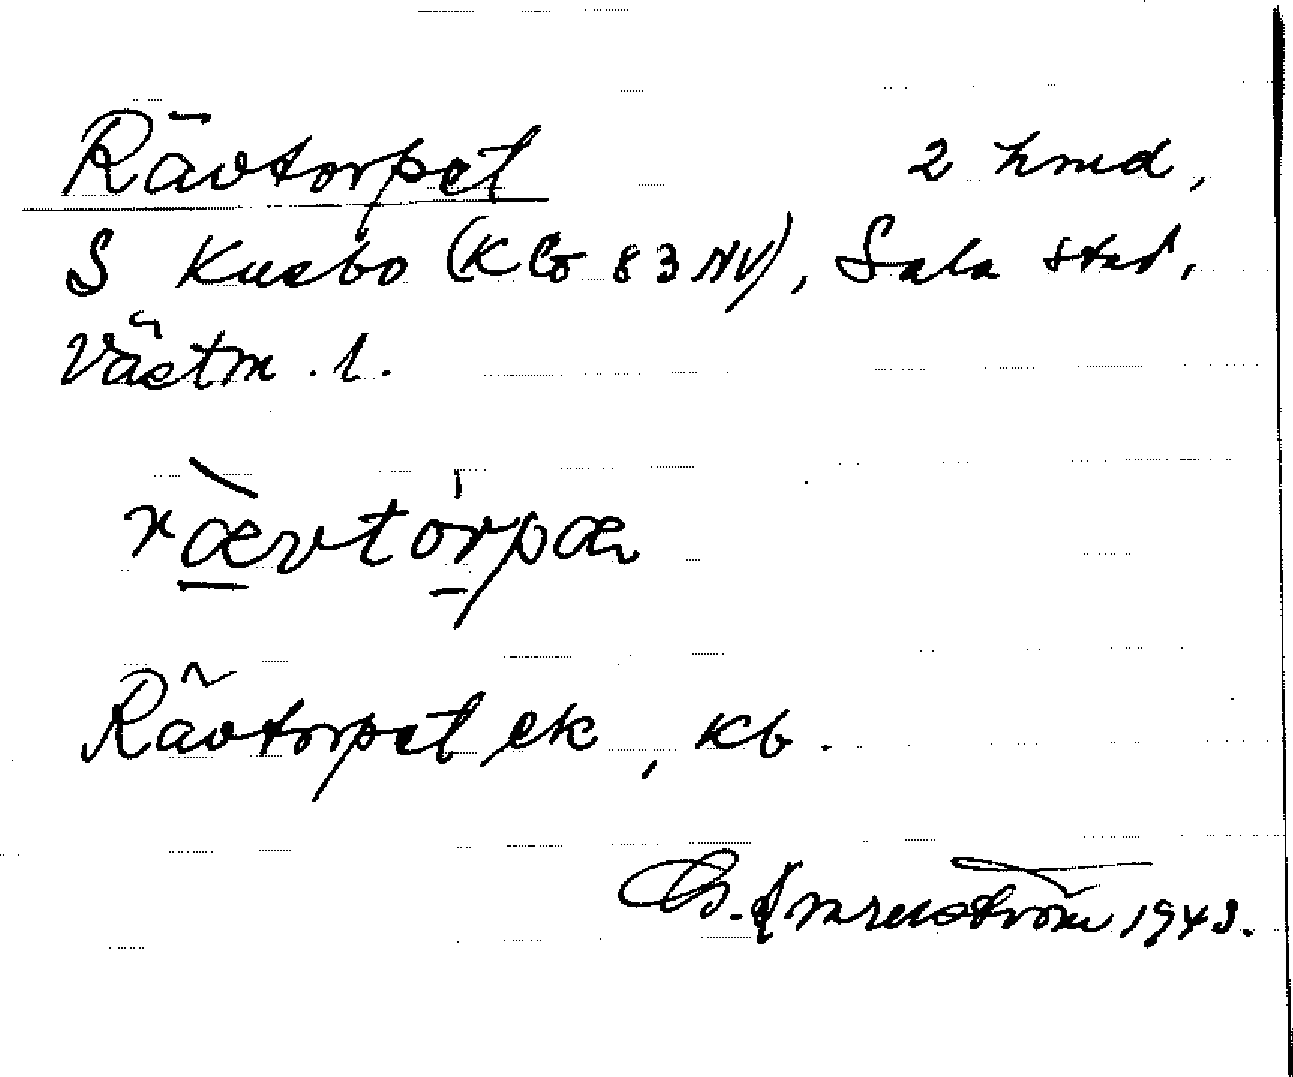 Rävtorpet 2 hmd,
S Kuebo (Kbo 83 NV), Sala stad,
Västm. l.
rævtòrpæ
Rävtorpet ek, kb.
1943.